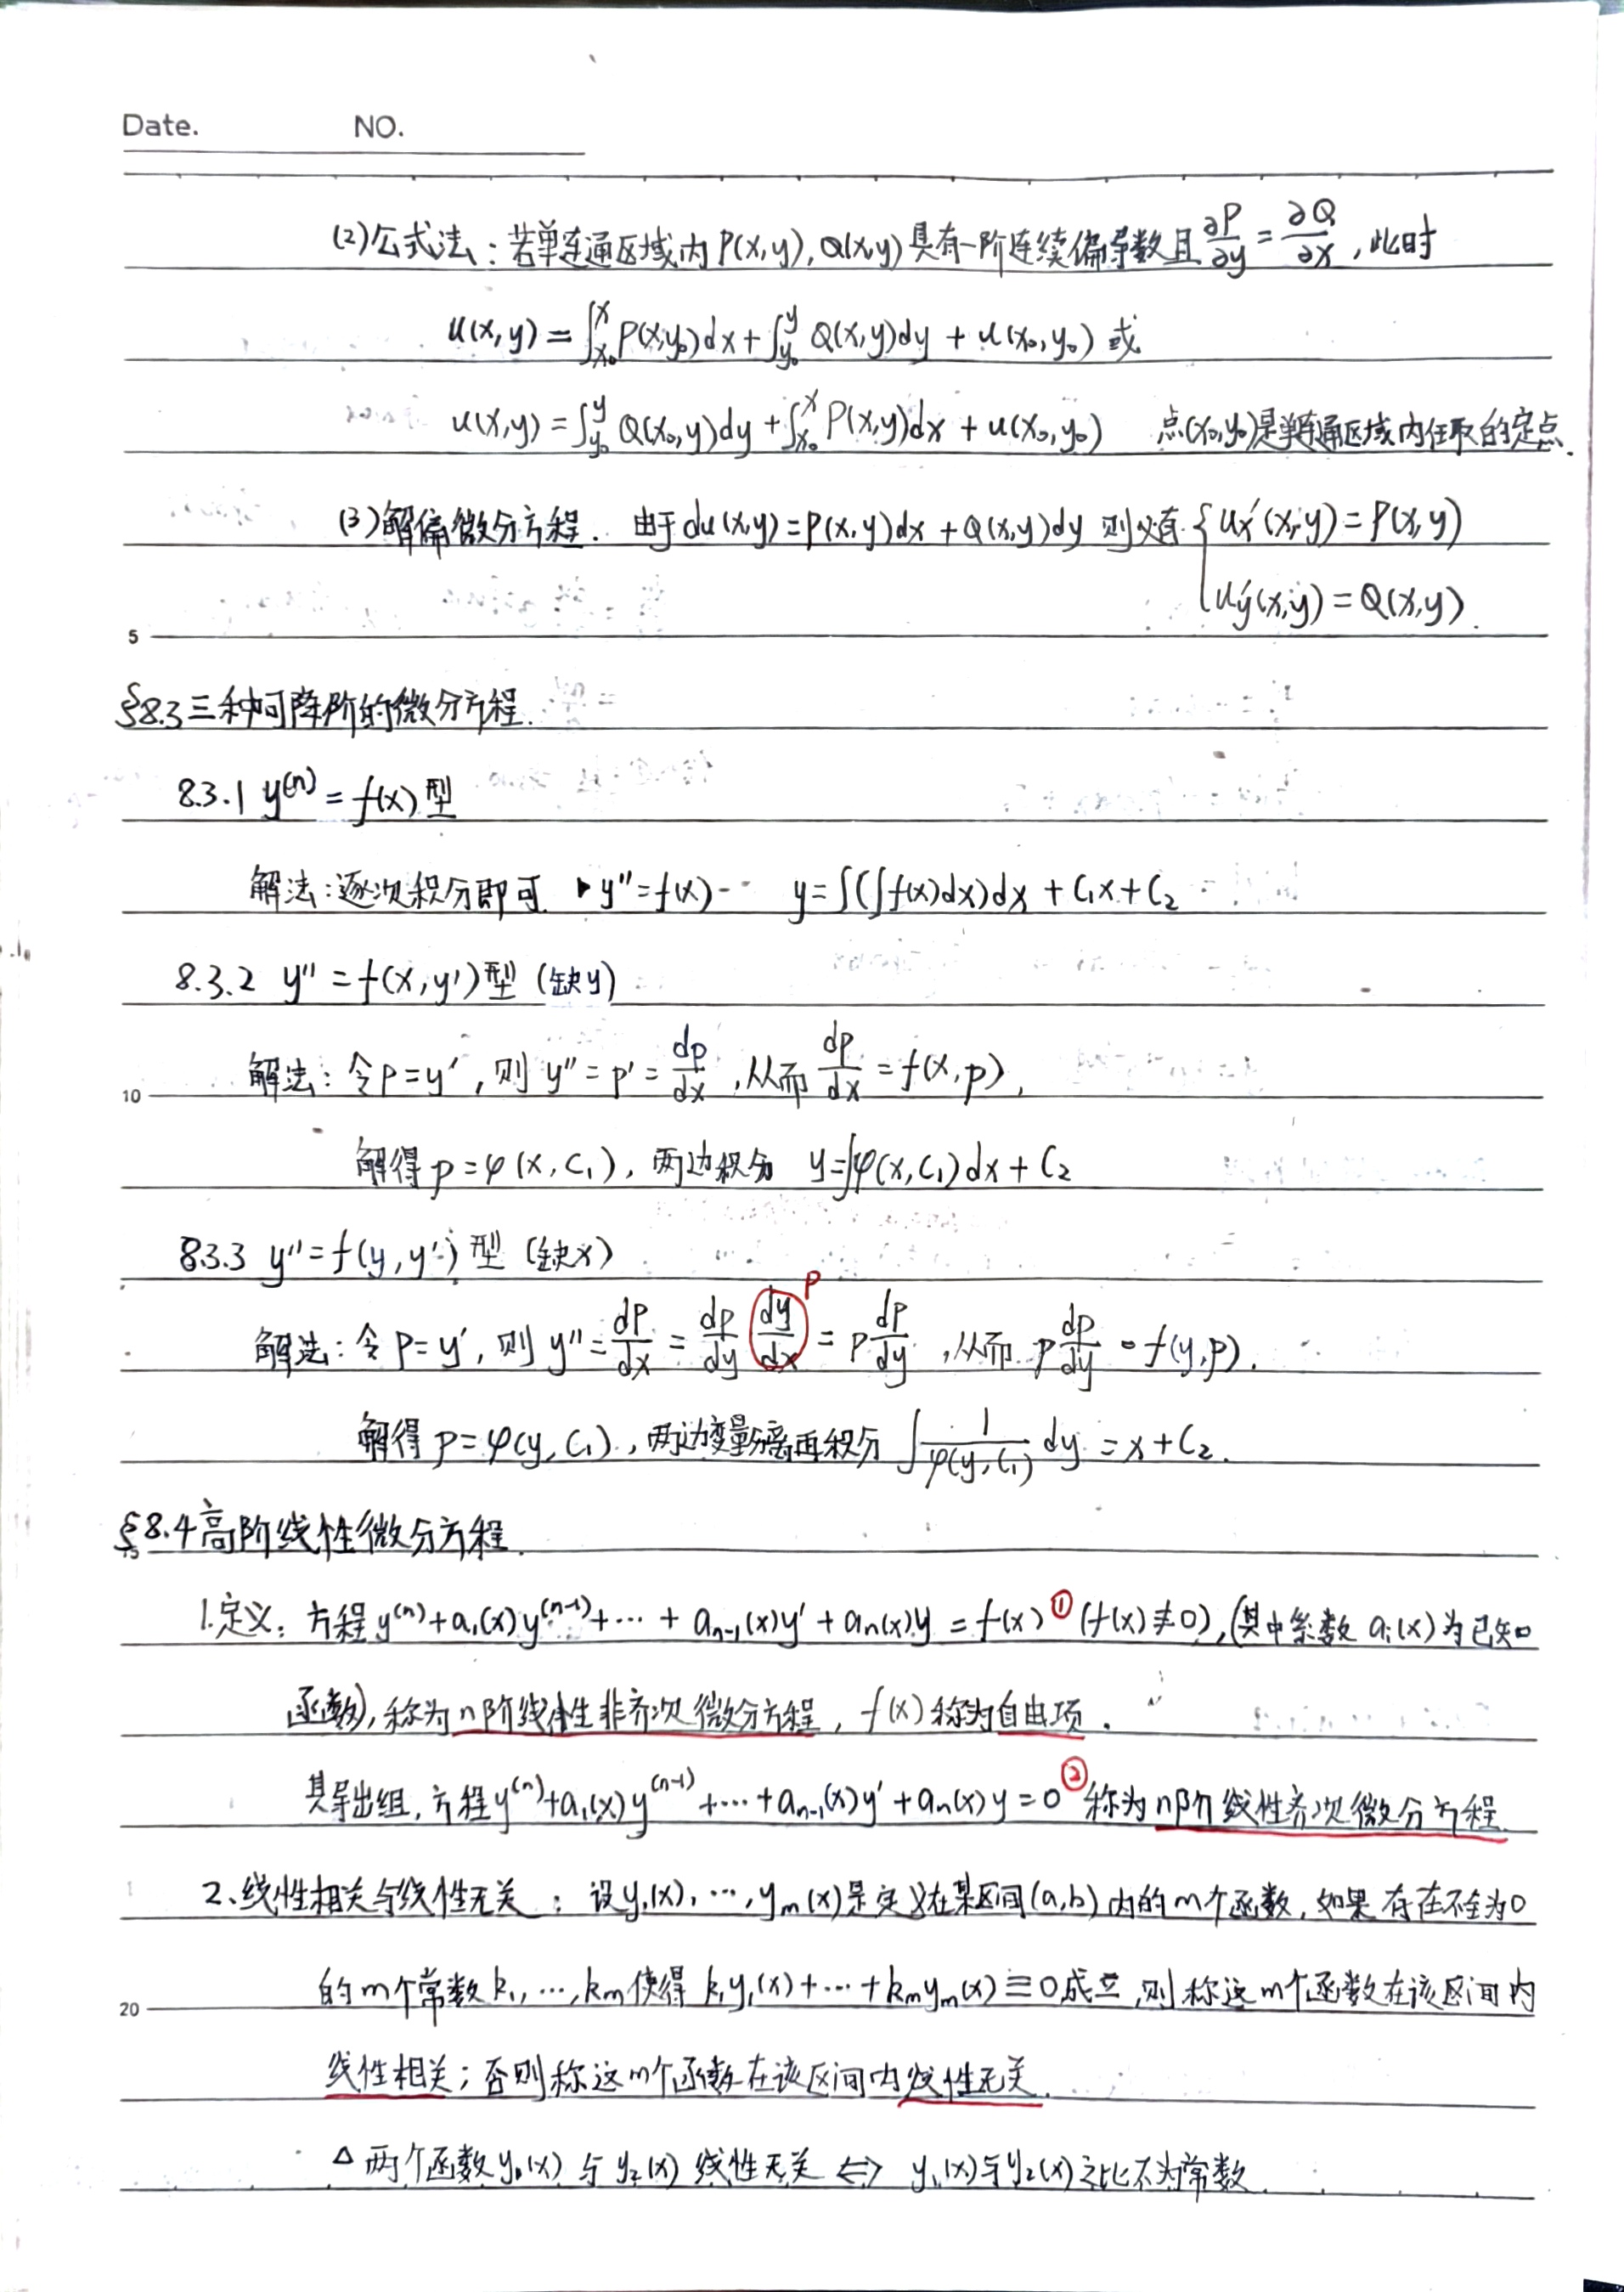 Date. NO.
(2)公式法：若单连通区域内P(x,y),Q(x,y)具有一阶连续偏导数且∂P/∂y=∂Q/∂x,此时
u(x,y)=∫_{x₀}^{x}P(x,y₀)dx+∫_{y₀}^{y}Q(x,y)dy+u(x₀,y₀)或
u(x,y)=∫_{y₀}^{y}Q(x₀,y)dy+∫_{x₀}^{x}P(x,y)dx+u(x₀,y₀) 点(x₀,y₀)是单连通区域内任取的定点.
(3)解偏微分方程. 由于du(x,y)=P(x,y)dx+Q(x,y)dy 则必有{ux'(x,y)=P(x,y)
uy'(x,y)=Q(x,y).
5
§8.3三种可降阶的微分方程.
8.3.1 y⁽ⁿ⁾=f(x)型
解法：逐次积分即可. ▸y''=f(x)-- y=∫(∫f(x)dx)dx+C₁x+C₂
8.3.2 y''=f(x,y')型(缺y)
解法：令p=y',则y''=p'=dp/dx,从而dp/dx=f(x,p),
10
解得p=φ(x,C₁),两边积分 y=∫φ(x,C₁)dx+C₂
8.3.3 y''=f(y,y')型(缺x)
解法：令p=y',则y''=dp/dx=dp/dy dy/dx P=p dp/dy,从而p dp/dy=f(y,p).
解得p=φ(y,C₁),两边变量分离再积分∫1/φ(y,C₁) dy=x+C₂.
§8.4高阶线性微分方程.
15
1.定义：方程y⁽ⁿ⁾+a₁(x)y⁽ⁿ⁻¹⁾+⋯+aₙ₋₁(x)y'+aₙ(x)y=f(x)①(f(x)≢0),(其中系数aᵢ(x)为已知
函数),称为n阶线性非齐次微分方程,f(x)称为自由项.
其导出组,方程y⁽ⁿ⁾+a₁(x)y⁽ⁿ⁻¹⁾+⋯+aₙ₋₁(x)y'+aₙ(x)y=0②称为n阶线性齐次微分方程.
2.线性相关与线性无关：设y₁(x),⋯,yₘ(x)是定义在某区间(a,b)内的m个函数,如果存在不全为0
的m个常数k₁,⋯,kₘ使得k₁y₁(x)+⋯+kₘyₘ(x)≡0成立,则称这m个函数在该区间内
20
线性相关；否则称这m个函数在该区间内线性无关.
△两个函数y₁(x)与y₂(x)线性无关⇔y₁(x)与y₂(x)之比不为常数.